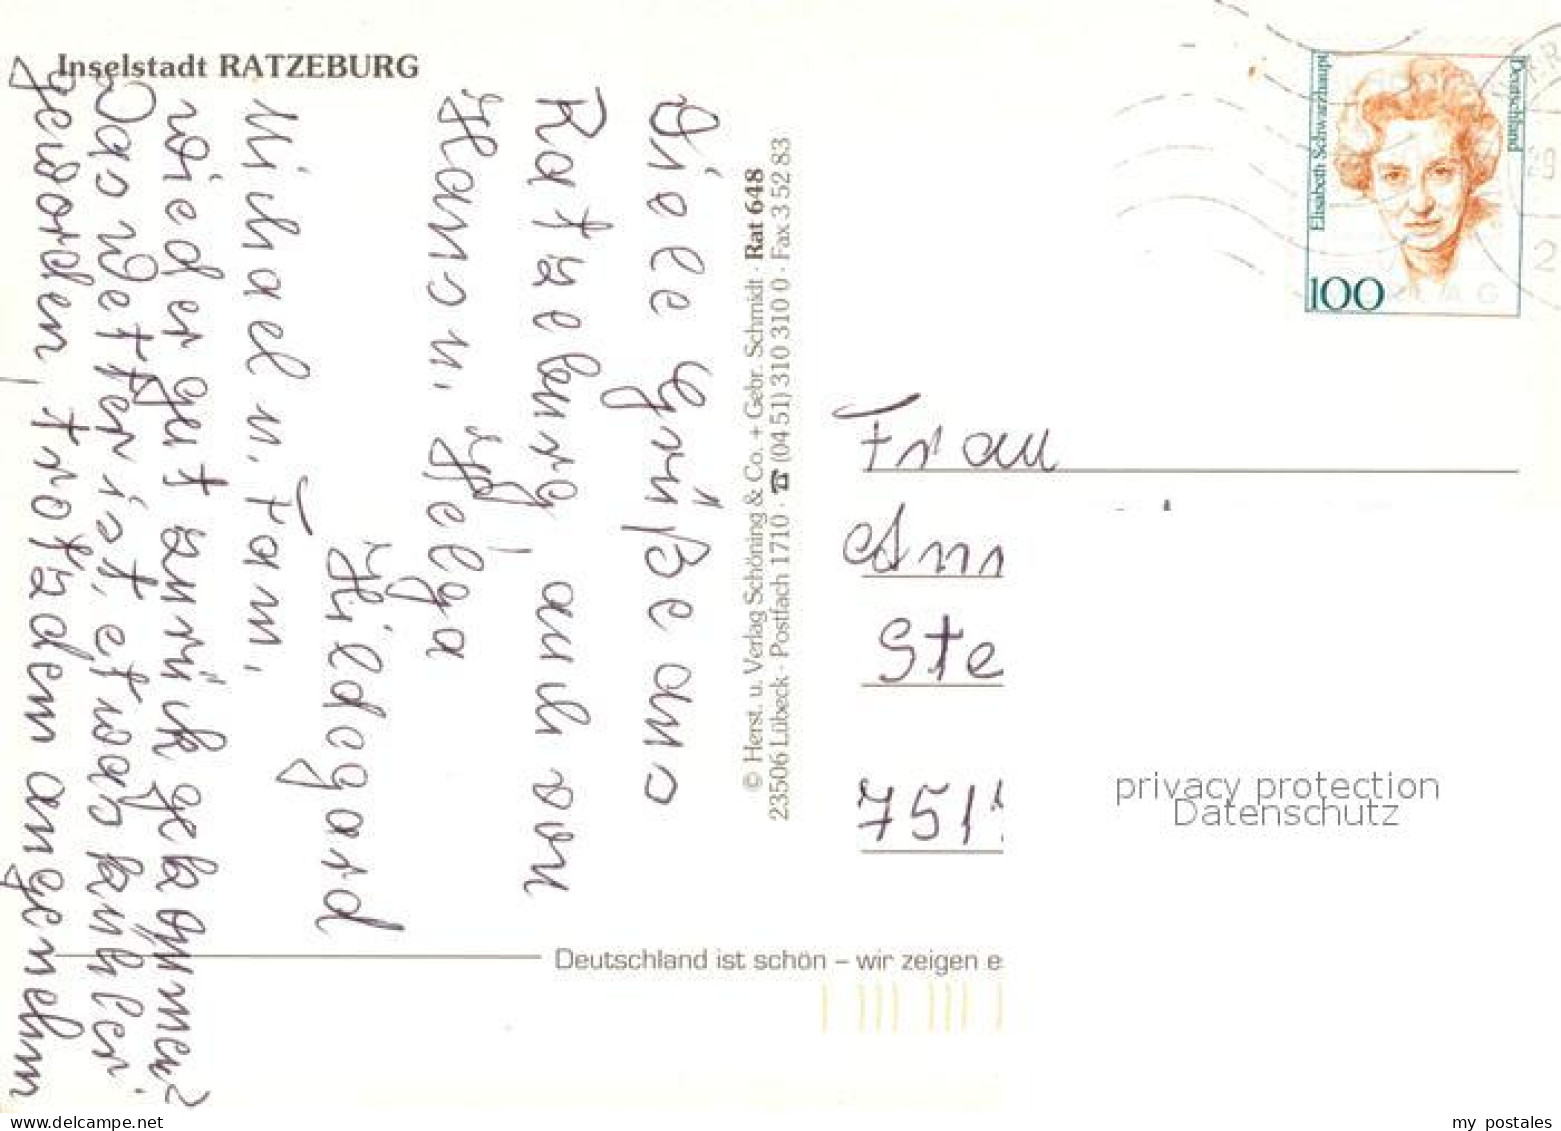 Inselstadt RATZEBURG
Viele Grüße aus
Ratzeburg, auch von
Hans u. Helga
Hildegard
Michael u. Fam.
wieder gut zurück gekommen?
Das Wetter ist etwas kühler
geworden, trotzdem angenehm
© Herst. u. Verlag Schöning & Co. + Gebr. Schmidt · Rat 648
23506 Lübeck · Postfach 1710 · ☎ (04 51) 310 310 0 · Fax 3 52 83
Elisabeth Schwarzhaupt
Deutschland
100
Frau
Ste
751
privacy protection
Datenschutz
Deutschland ist schön – wir zeigen e
delcampe.net
my_postales